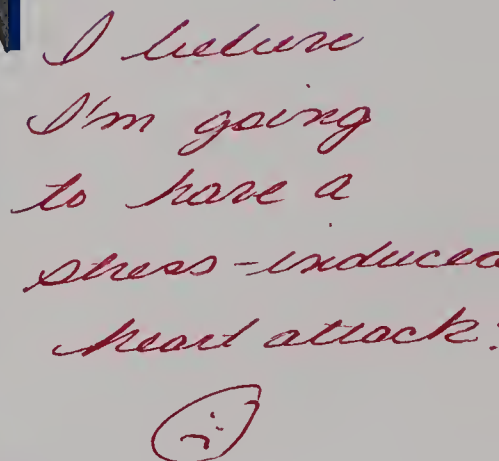 I believe
I'm going
to have a
stress-induced
heart attack.